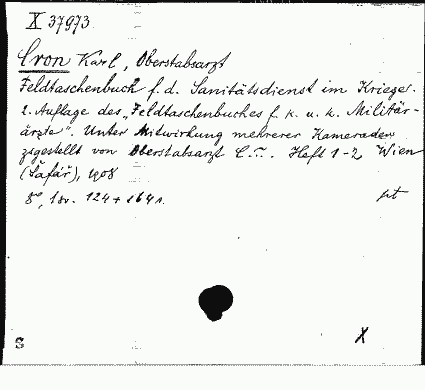 X 37973
Cron Karl, Oberstabsarzt
Feldtaschenbuch f. d. Sanitätsdienst im Kriege.
2. Auflage des "Feldtaschenbuches f. k. u. k. Militär-
ärzte". Unter Mitwirkung mehrerer Kameraden
zsgestellt von Oberstabsarzt C.... Heft 1-2 Wien
(Šafář), 1908
8°, 1 sv. 124 + 164 s.
S
X